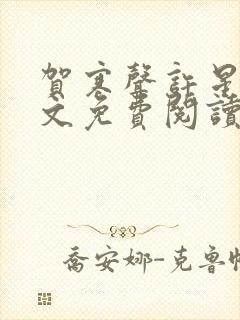 賀寒聲許星
文免費閱讀
喬安娜-克魯